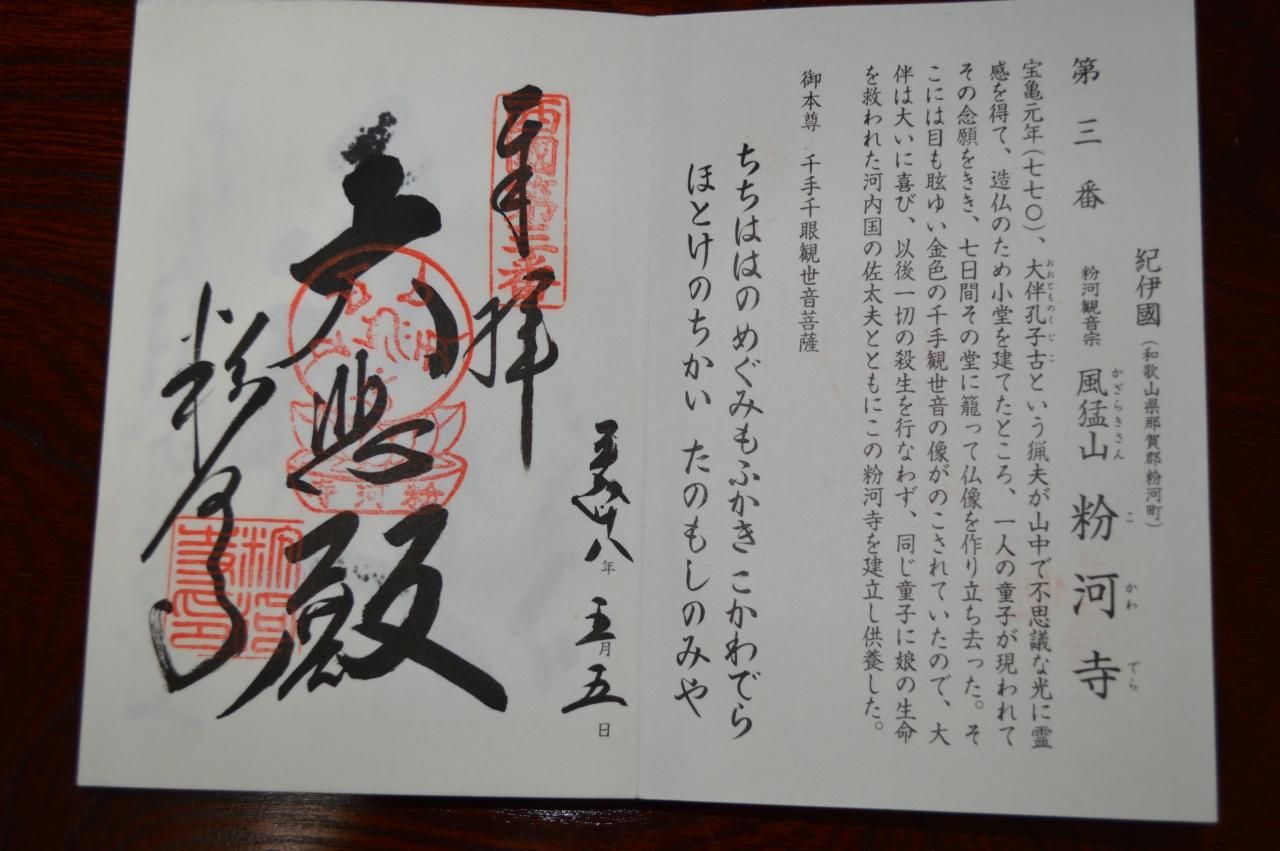 紀伊國(和歌山県那賀郡粉河町)
第三番 粉河観音宗 風猛山 粉河寺
かざらきさん こかわでら
宝亀元年(七七〇)、大伴孔子古という猟夫が山中で不思議な光に霊
おおとものくじこ
感を得て、造仏のため小堂を建てたところ、一人の童子が現われて
その念願をきき、七日間その堂に籠って仏像を作り立ち去った。そ
こには目も眩ゆい金色の千手観世音の像がのこされていたので、大
伴は大いに喜び、以後一切の殺生を行なわず、同じ童子に娘の生命
を救われた河内国の佐太夫とともにこの粉河寺を建立し供養した。
御本尊 千手千眼観世音菩薩
ちちははのめぐみもふかきこかわでら
ほとけのちかい たのもしのみや
奉拝
西國第三番
年 五月五日
大悲殿
粉河寺
粉河寺